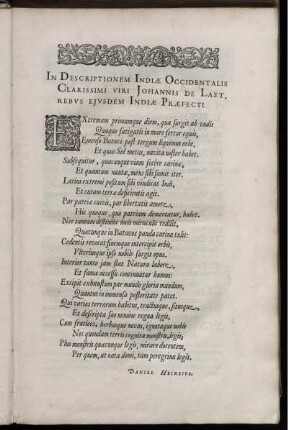 IN DESCRIPTIONEM INDIÆ OCCIDENTALIS
CLARISSIMI VIRI JOHANNIS DE LAET,
REBVS EJVSDEM INDIÆ PRÆFECTI.
EXtremam primumque diem, qua surgit ab undis
Quaque fatigatis in mare fertur equis,
Emenso Batavus post tergum liquimus orbe,
Et quas Sol metas, navita noster habet.
Subsequitur, quacunque viam fecere carinæ,
Et quantum nautæ, mens sibi sumit iter.
Latius extremi positum sibi vindicat Indi,
Et coram terra descriptis agit.
Par patriæ curis, par libertatis amore,
His quoque, qua patriam demereatur, habet.
Nec tantum distincte
Quacunque in Batavos panda carina tulit:
Cedentis revocat finemque intercipit orbis,
Vlteriusque ipso nobile surgit opus.
Interior tanto jam stat Natura labore,
Et fama accessu continuatur humus:
Excipit exhaustum par mundo gloria mundum,
Quantus in immensa posteritate patet.
Qui varios terrarum habitus, tractusque, situsque,
Et descripta suo nomine regna legis,
Cum fruticos, herbasque novas, ignotaque nobis
Nec quondam terris cognita monstra, legis;
Plus monstris quacunque legis, mirare docentem,
Per quem, ut nota domi, tam peregrina legis.
DANIEL HEINSIVS.